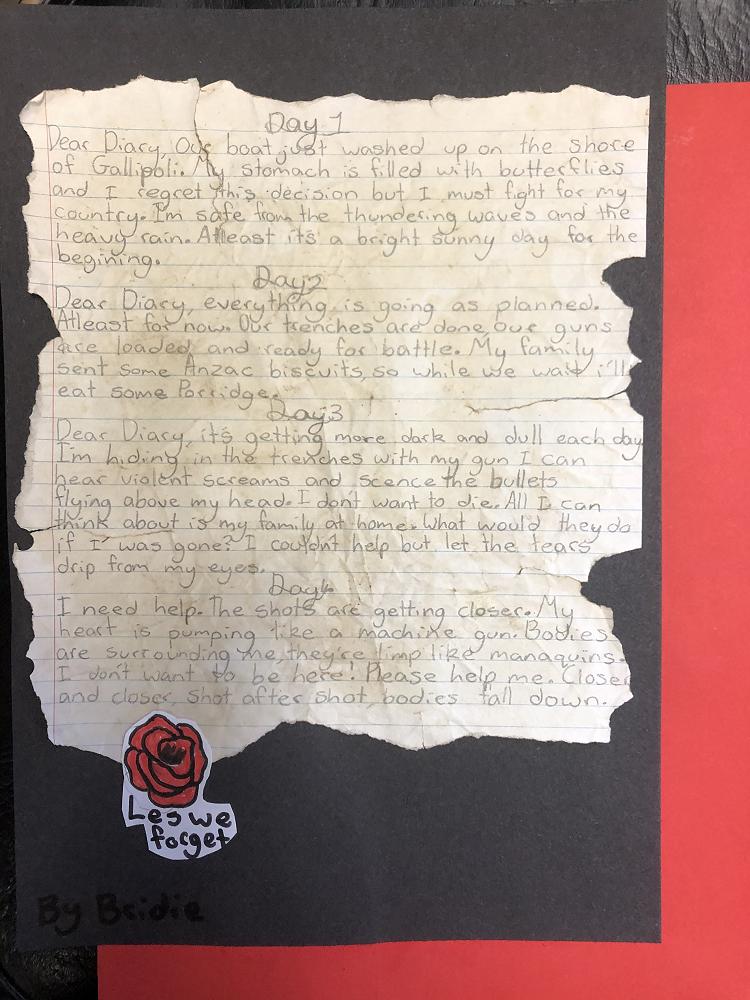 Day 1
Dear Diary, Our boat just washed up on the shore
of Gallipoli. My stomach is filled with butterflies
and I regret this decision but I must fight for my
country. I'm safe from the thundering waves and the
heavy rain. Atleast it's a bright sunny day for the
begining.
Day2
Dear Diary, everything is going as planned.
Atleast for now. Our trenches are done, our guns
are loaded and ready for battle. My family
sent some Anzac biscuits, so while we wait i'll
eat some Porridge.
Day3
Dear Diary, it's getting more dark and dull each day
I'm hiding in the trenches with my gun I can
hear violent screams and scence the bullets
flying above my head. I don't want to die. All I can
think about is my family at home. What would they do
if I was gone? I couldn't help but let the tears
drip from my eyes.
Day4
I need help. The shots are getting closer. My
heart is pumping like a machine gun. Bodies
are surrounding me, they're limp like manaquins.
I don't want to be here! Please help me. Closer
and closer, shot after shot bodies fall down.
Les we
forget
By Bridie